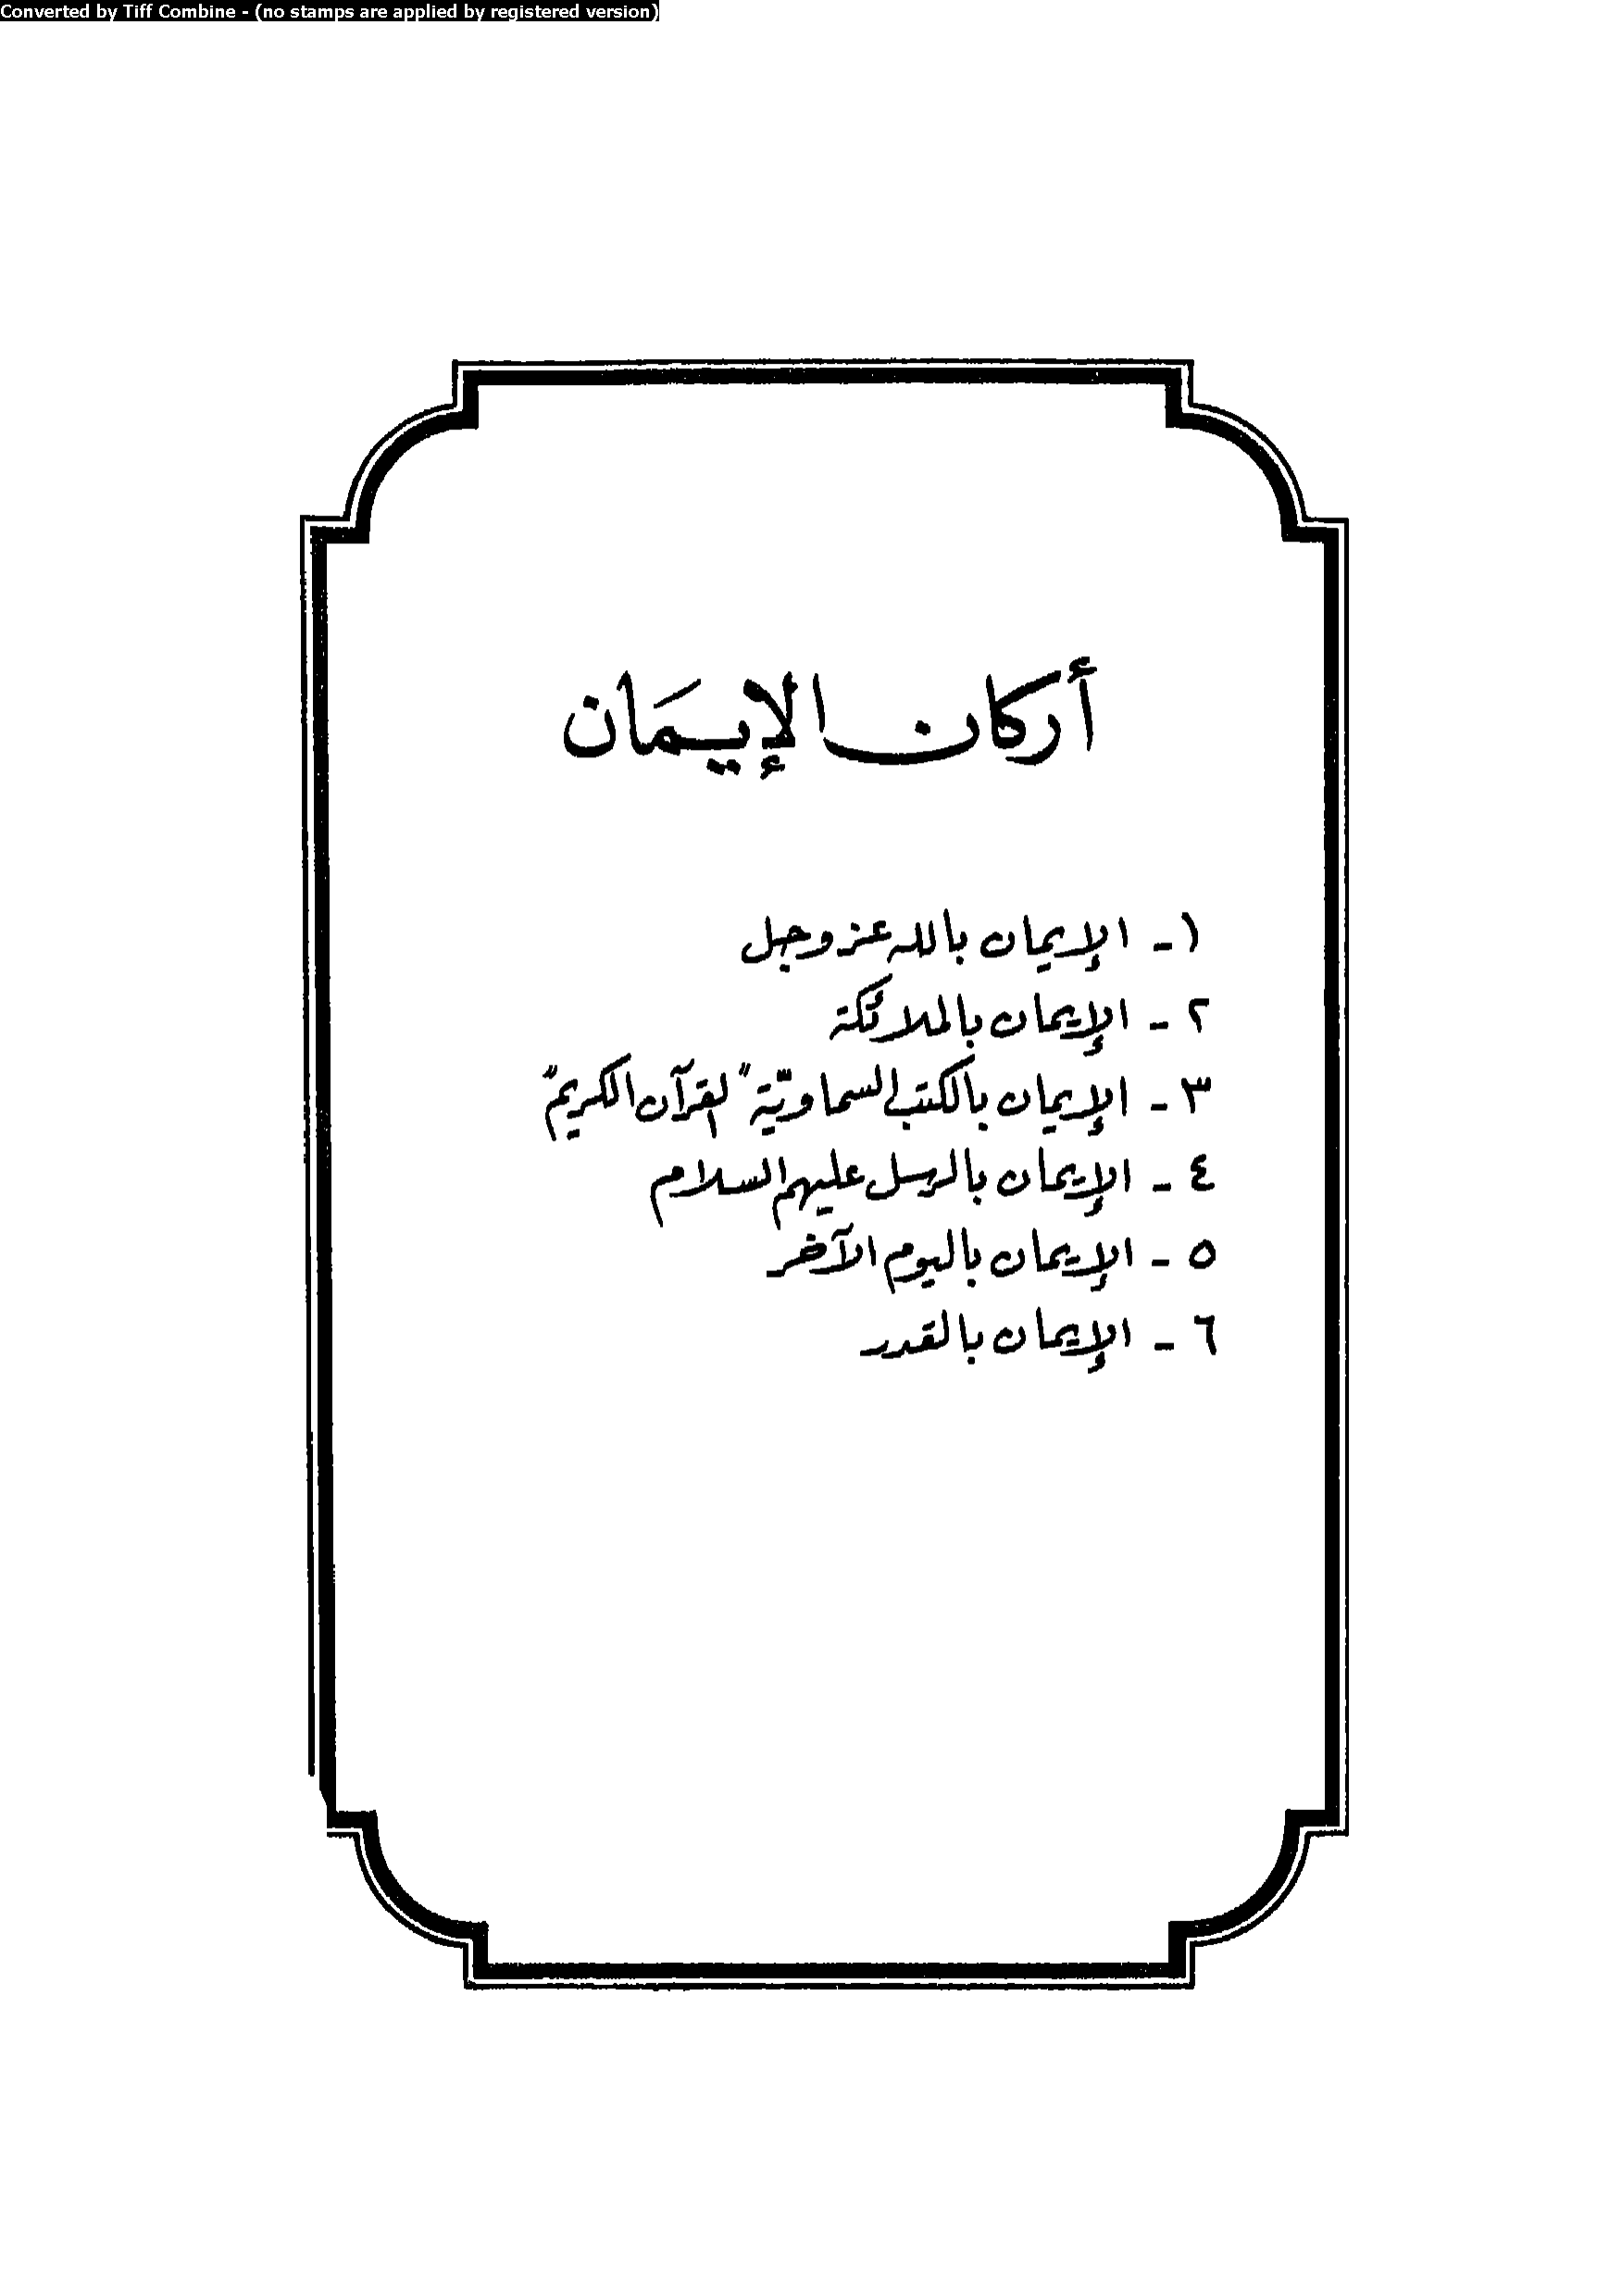 Converted by Tiff Combine - (no stamps are applied by registered version)
أركان الإيمَان
١ - الإيمان بالله عز وجل
٢ - الإيمان بالملائكة
٣ - الإيمان بالكتب السماويّة "القرآن الكريم"
٤ - الإيمان بالرسل عليهم السلام
٥ - الإيمان باليوم الآخر
٦ - الإيمان بالقدر